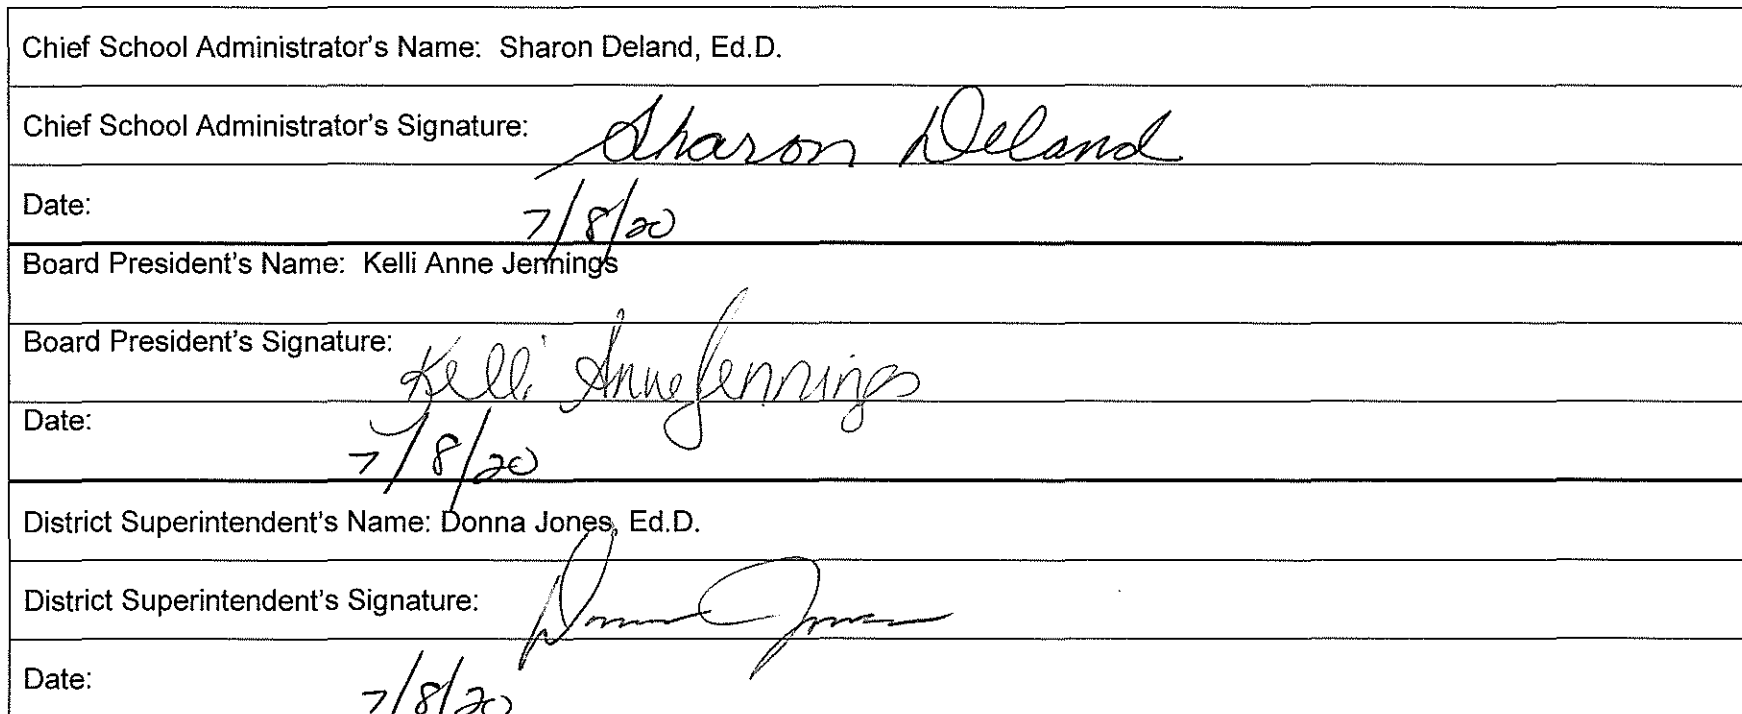 Chief School Administrator's Name: Sharon Deland, Ed.D.
Chief School Administrator's Signature: Sharon Deland
Date: 7/8/20
Board President's Name: Kelli Anne Jennings
Board President's Signature: Kelli Anne Jennings
Date: 7/8/20
District Superintendent's Name: Donna Jones, Ed.D.
District Superintendent's Signature: Donna Jones
Date: 7/8/20